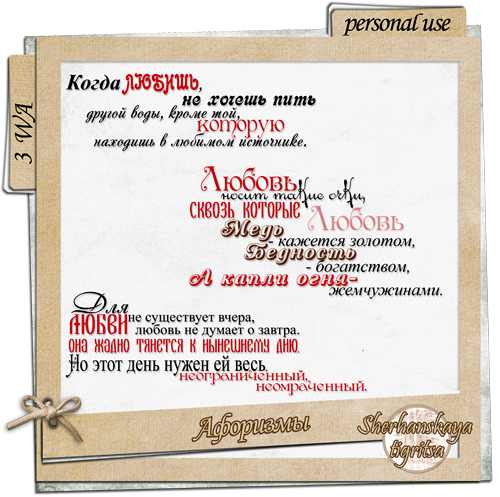 personal use
3 WA
Когда ЛЮБИШЬ,
не хочешь пить
другой воды, кроме той,
которую
находишь в любимом источнике.
Любовь
носит таКие очКи,
СКВОЗЬ КОТОРЫЕ
Любовь
Медь
- кажется золотом,
Бедность
- богатством,
А капли огня-
жемчужинами.
Для
ЛЮБВИ не существует вчера,
любовь не думает о завтра.
Она жадно тянется к нынешнему дню.
Но этот день нужен ей весь,
неограниченный,
неомраченный.
Афоризмы
Sherhanskaya
tigritsa